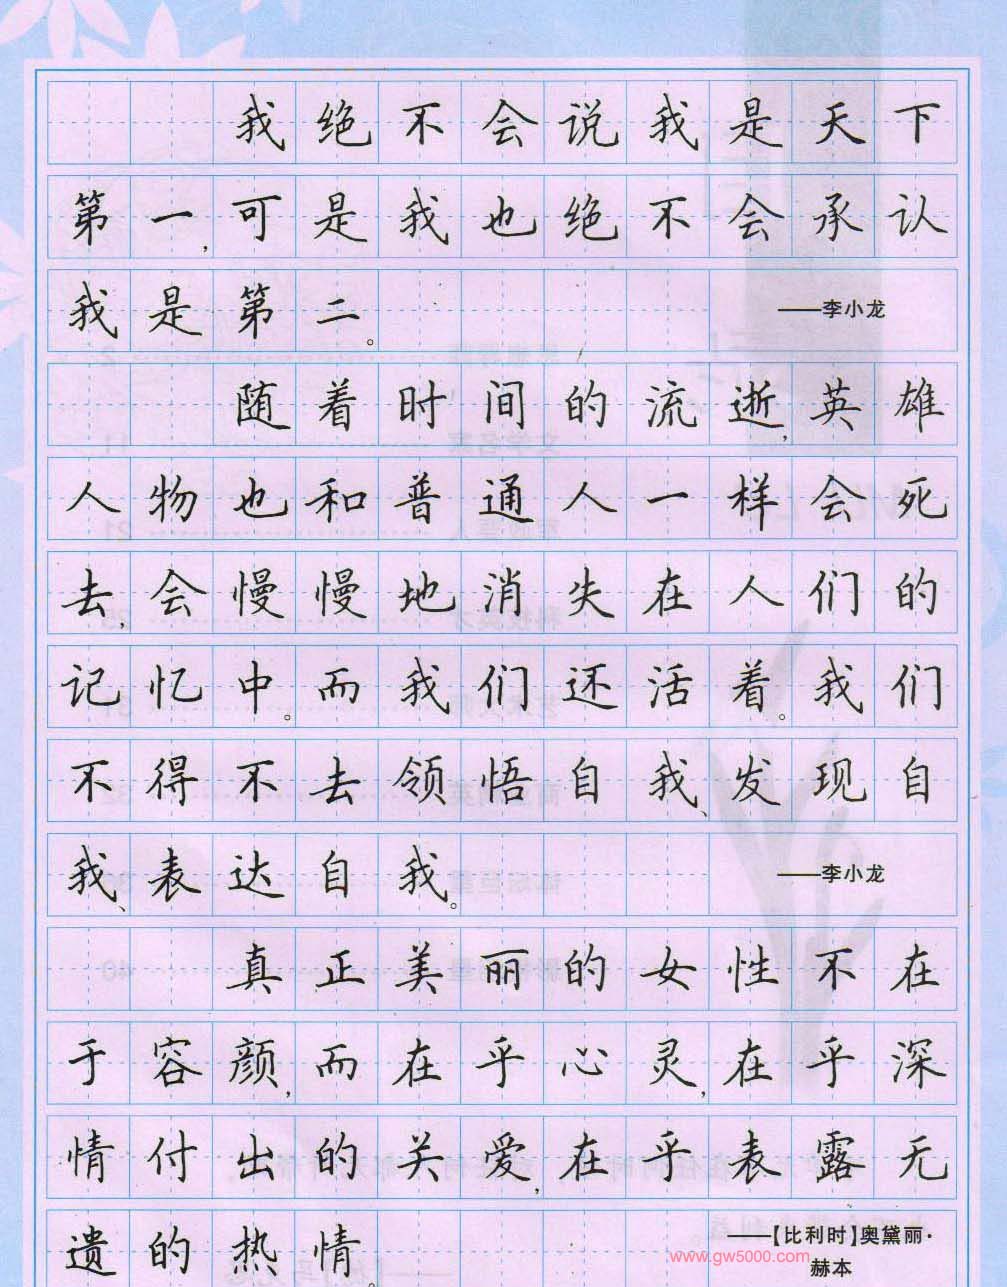 我绝不会说我是天下
第一,可是我也绝不会承认
我是第二。 ——李小龙
随着时间的流逝,英雄
人物也和普通人一样会死
去,会慢慢地消失在人们的
记忆中。而我们还活着。我们
不得不去领悟自我、发现自
我、表达自我。 ——李小龙
真正美丽的女性不在
于容颜,而在乎心灵,在乎深
情付出的关爱,在乎表露无
遗的热情。 ——【比利时】奥黛丽·
赫本
www.gw5000.com